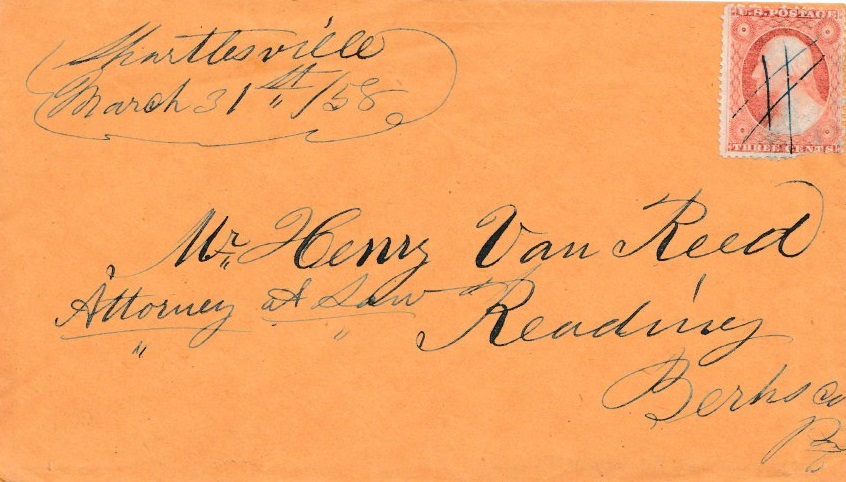 Shartlesville
March 31st /58
U.S. POSTAGE
THREE CENTS
Mr. Henry Van Reed
Attorney at Law
Reading
Berks co
Pa